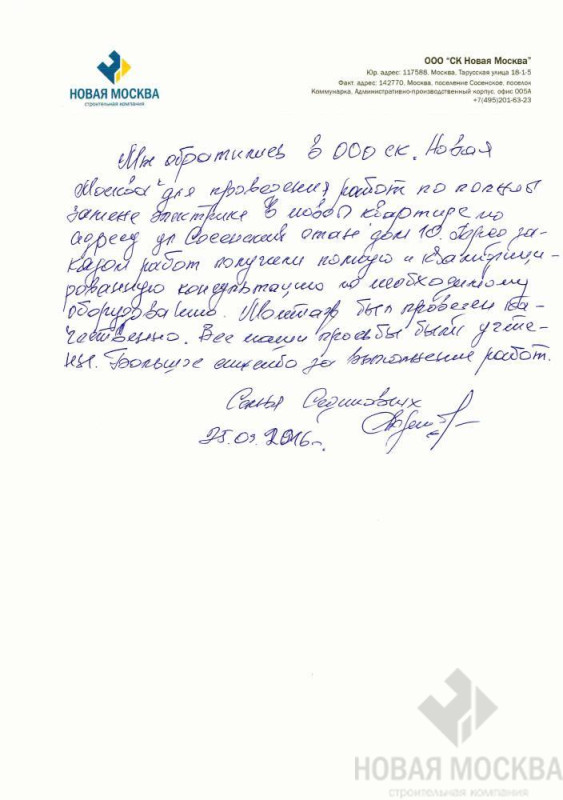 НОВАЯ МОСКВА
строительная компания
ООО "СК Новая Москва"
Юр. адрес: 117588, Москва, Тарусская улица 18-1-5
Факт. адрес: 142770, Москва, поселение Сосенское, поселок
Коммунарка, Административно-производственный корпус, офис 005А
+7(495)201-63-23
Мы обратились в ООО ск. Новая
Москва" для проведения работ по полной
замене электрике в новой квартире по
адресу ул Сосенский стан дом 10. Перед за-
казом работ получили полную и квалифици-
рованную консультацию по необходимому
оборудованию. Монтаж был проведен ка-
чественно. Все наши просьбы были учте-
ны. Большое спасибо за выполнение работ.
Семья
25.03.2016г.
НОВАЯ МОСКВА
строительная компания